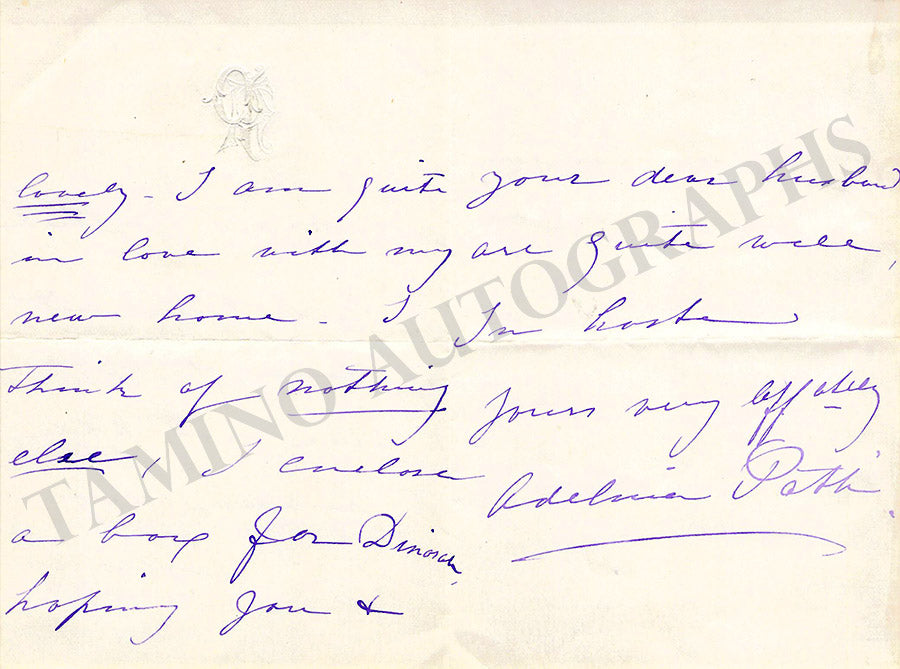 lovely - I am quite
in love with my
new home - I
think of nothing
else, I enclose
a box for Dinorah,
hoping you &
your dear husband
are quite well,
In haste
Yours very affately
Adelina Patti.
TAMINO AUTOGRAPHS